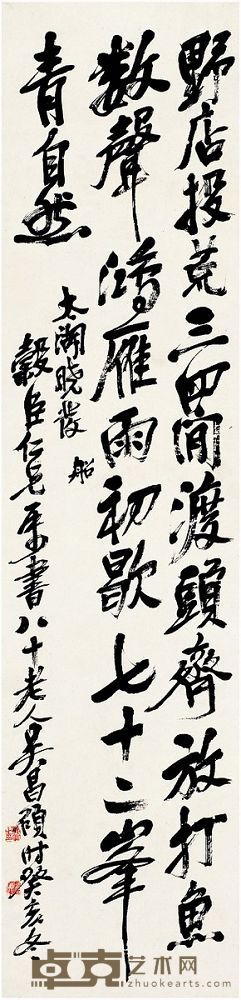 野店投荒三四間渡頭齊放打魚
數聲鴻雁雨初歇七十二峯
青自然
太湖曉發
船
穀臣仁兄屬書八十老人吳昌碩時癸亥冬
卓克艺术网
www.zhuokearts.com